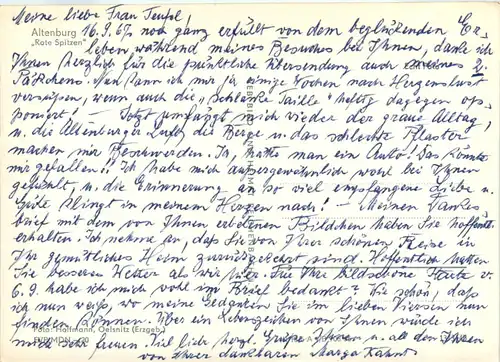 Meine liebe Frau Teufel,
Altenburg
"Rote Spitzen"
16.9.67, noch ganz erfüllt von dem beglückenden Er-
leben während meines Besuches bei Ihnen, danke ich
Ihnen herzlich für die pünktliche Übersendung auch meines 2.
Päckchens. Nun kann ich mir ja einige Wochen nach Herzenslust
versüßen, wenn auch die "schlanke Taille" heftig dagegen op-
poniert, — Jetzt umfängt mich wieder der graue Alltag,
u. die Altenburger Luft, die Berge u. das schlechte Pflaster
machen mir Beschwerden. Ja, hätte man ein Auto! Das könnte
mir gefallen!! Ich habe mich außergewöhnlich wohl bei Ihnen
gefühlt, u. die Erinnerung an so viel empfangene Liebe u.
Güte klingt in meinem Herzen nach! — Meinen Dankes-
brief mit dem von Ihnen erbetenen Bildchen haben Sie hoffentl.
erhalten. Ich nehme an, daß Sie von Ihrer schönen Reise in
Ihr gemütliches Heim zurückgekehrt sind. Hoffentlich hatten
Sie besseres Wetter als wir hier. Für Ihre bildschöne Karte v.
6.9. habe ich mich wohl im Brief bedankt? Wie schön, daß
ich nun weiß, wo meine Gedanken Sie im lieben Viersen nun
finden können. Über ein Lebenszeichen von Ihnen würde ich
Foto: Hoffmann, Oelsnitz (Erzgeb.)
mich sehr freuen. Viel liebe herzl. Grüße Ihnen u. all den Ihren
von Ihrer dankbaren Marga